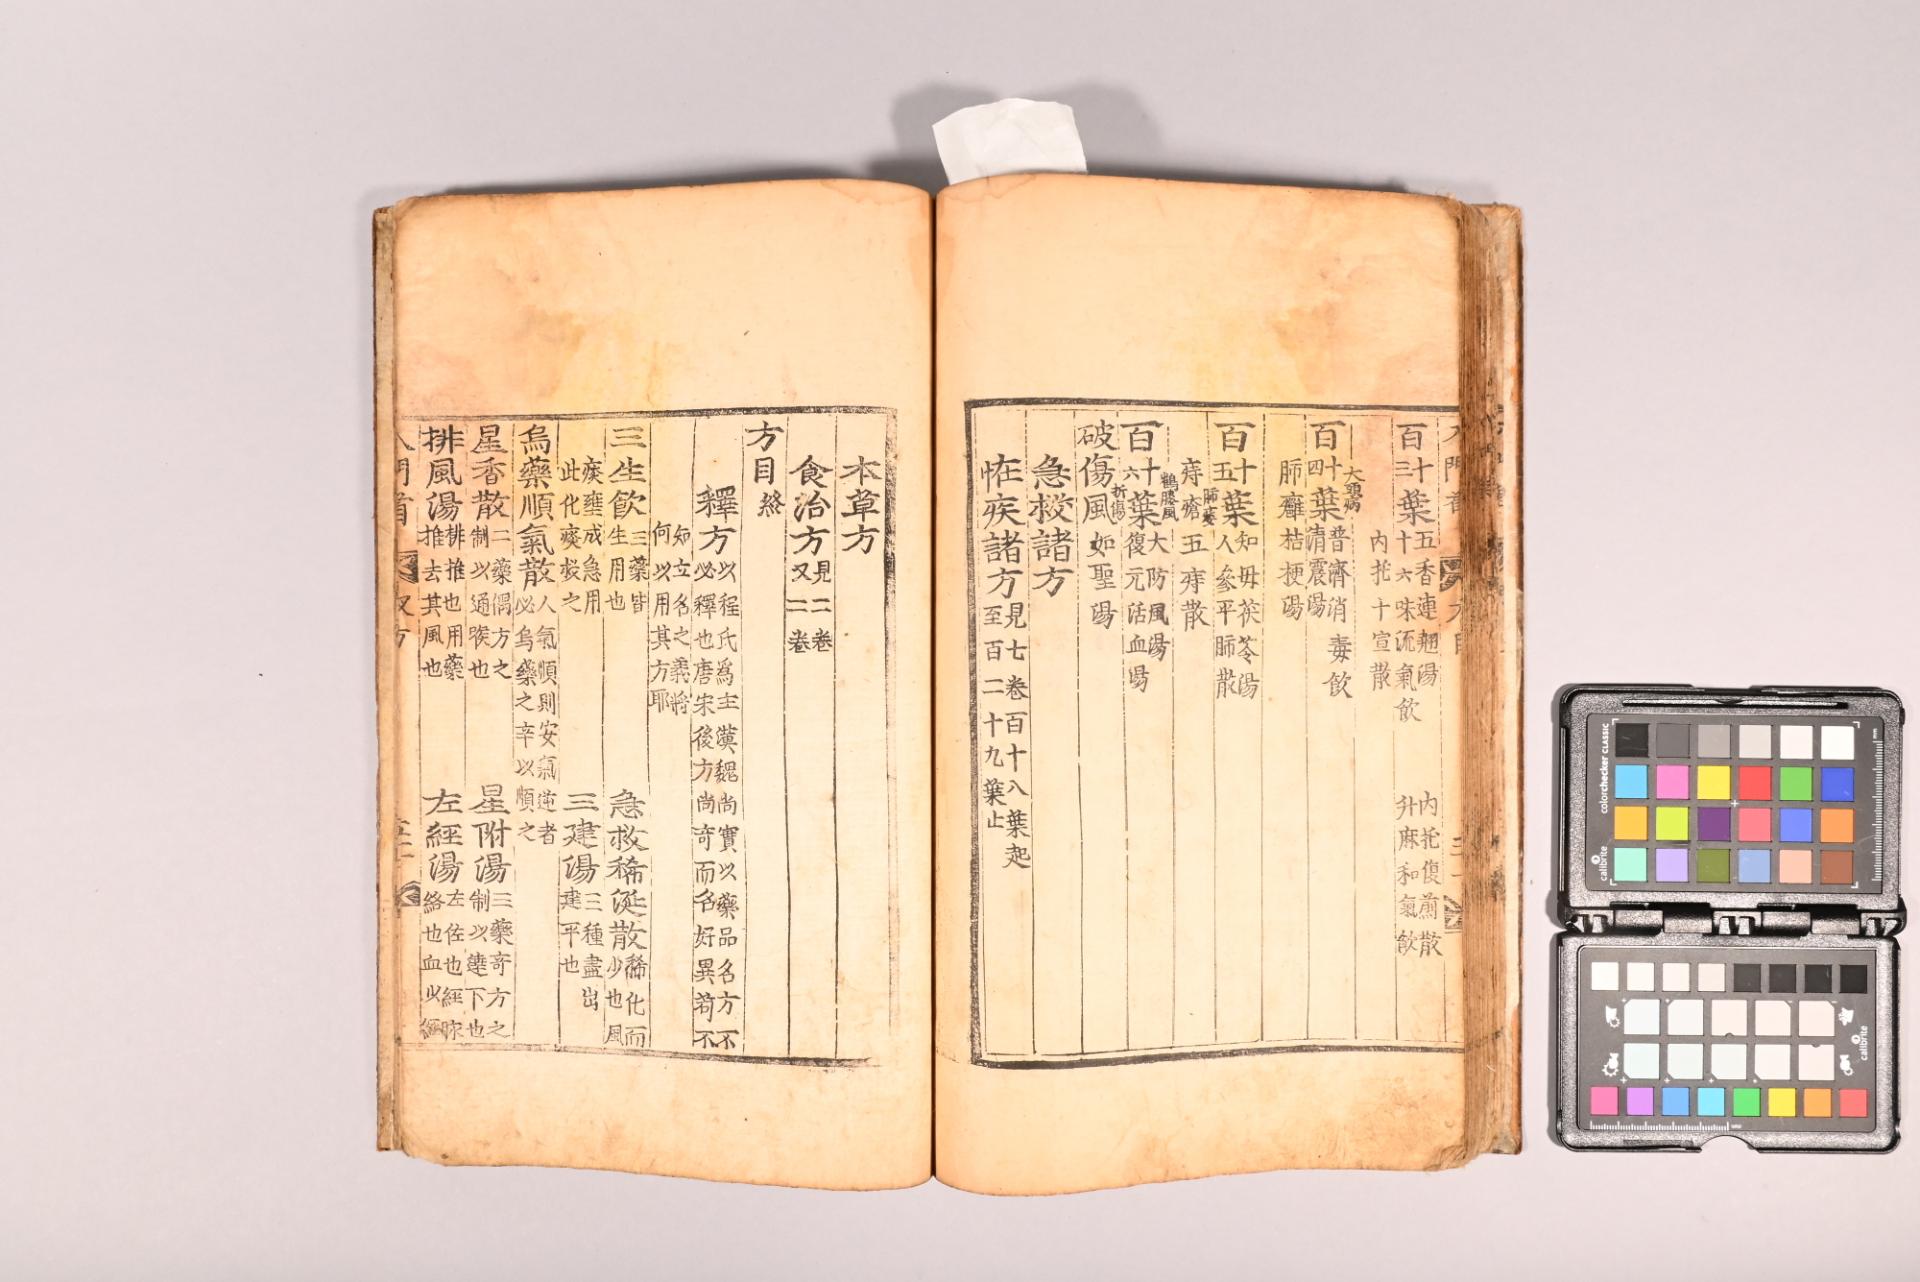 百十三葉五香連翹湯 內托復煎散
十六味流氣飲 升麻和氣飲
內托十宣散
大頭病
百十四葉普濟消毒飲
清震湯
肺癰桔梗湯
百十五葉知母茯苓湯
肺痿人參平肺散
痔瘡五痔散
鶴膝風
百十六葉大防風湯
折傷復元活血湯
破傷風如聖湯
急救諸方
恠疾諸方見七卷百十八葉起
至百二十九葉止
本草方
食治方見二卷
又二卷
方目終
釋方以程氏為主漢魏尚實以藥品名方不
必釋也唐宋後方尚奇而名好異苟不
知立名之義將
何以用其方耶
三生飲三藥皆生用也 急救稀涎散稀化而少也風
痰壅成急用
此化痰救之 三建湯三種盡出建平也
烏藥順氣散人氣順則安氣逆者
必烏藥之辛以順之
星香散二藥偶方之制以通喉也 星附湯三藥奇方之制以達下也
排風湯排推也用藥推去其風也 左經湯左佐也經脉絡也血必經